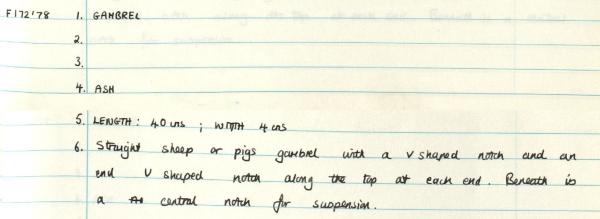 F172'78 1. GAMBREL
2.
3.
4. ASH
5. LENGTH: 40 cms ; WIDTH 4 cms
6. Straight sheep or pigs gambrel with a V shaped notch and an
end V shaped notch along the top at each end. Beneath is
a central notch for suspension.